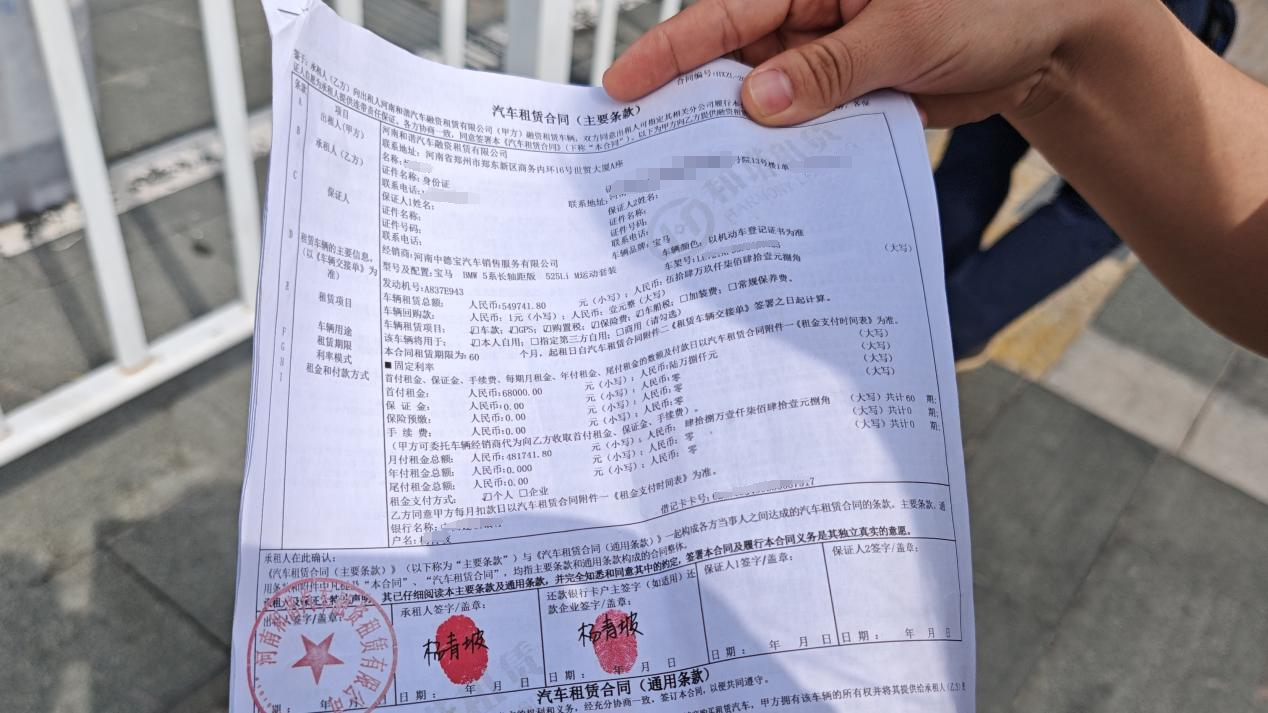 合同编号:HXZL/2
汽车租赁合同（主要条款）
鉴于:承租人（乙方）向出租人河南和谐汽车融资租赁有限公司（甲方）融资租赁车辆，双方同意出租人可指定其相关分公司履行本
证人自愿为承租人提供连带责任保证，各方协商一致，同意签署本《汽车租赁合同》（下称“本合同”），以下为甲方向乙方提供融资租赁
条款 项目
A 出租人（甲方） 河南和谐汽车融资租赁有限公司
联系地址:河南省郑州市郑东新区商务内环16号世贸大厦A座
B 承租人（乙方） 名称:
证件名称:身份证
联系电话: 联系地址:河 院13号楼1单
C 保证人 保证人1姓名: 保证人2姓名:
证件名称: 证件名称:
证件号码: 证件号码:
联系电话: 联系电话:
D 租赁车辆的主要信息，（以《车辆交接单》为准） 经销商:河南中德宝汽车销售服务有限公司 车辆品牌:宝马
型号及配置:宝马 BMW 5系长轴距版 525Li M运动套装 车辆颜色:以机动车登记证书为准
发动机号:A837E943 车架号:
E 租赁项目 车辆租赁总额: 人民币:549741.80 元（小写）；人民币:伍拾肆万玖仟柒佰肆拾壹元捌角 （大写）
车辆回购款: 人民币:1元（小写）；人民币:壹元整（大写）
车辆租赁项目: ☑车款;☑GPS;☑购置税;☑保险费;☑车船税;□加装费;□常规保养费。
F 车辆用途 该车辆将用于: ☑本人自用;□指定第三方自用;□商用（请勾选）
G 租赁期限 本合同租赁期限为:60 个月，起租日自汽车租赁合同附件二《租赁车辆交接单》签署之日起计算。
H 利率模式 ■固定利率
I 租金和付款方式 首付租金、保证金、手续费、每期月租金、年付租金、尾付租金的数额及付款日以汽车租赁合同附件一《租金支付时间表》为准。
首付租金: 人民币:68000.00 元（小写）；人民币:陆万捌仟元 （大写）
保 证 金: 人民币:0.00 元（小写）；人民币:零 （大写）
保险预缴: 人民币:0.00 元（小写）；人民币:零 （大写）
手 续 费: 人民币:0.00 元（小写）；人民币:零 （大写）
（甲方可委托车辆经销商代为向乙方收取首付租金、保证金、手续费）。
月付租金总额: 人民币:481741.80 元（小写）；人民币: 肆拾捌万壹仟柒佰肆拾壹元捌角 （大写）共计60 期;
年付租金总额: 人民币:0.000 元（小写）；人民币: 零 （大写）共计0 期;
尾付租金总额: 人民币:0.00 元（小写）；人民币: 零 （大写）共计0 期;
租金支付方式: ☑个人 □企业
乙方同意甲方每月扣款日以汽车租赁合同附件一《租金支付时间表》为准。
银行名称: 借记卡卡号:
户名:
承租人在此确认:
《汽车租赁合同（主要条款）》（以下称为“主要条款”）与《汽车租赁合同（通用条款）》一起构成各方当事人之间达成的汽车租赁合同的条款，主要条款、通
用条款和附件中凡提及“本合同”、“汽车租赁合同”，均指主要条款和通用条款构成的合同整体。
其已仔细阅读本主要条款及通用条款，并完全知悉和同意其中的约定，签署本合同及履行本合同义务是其独立真实的意愿。
出租人签字/盖章: 承租人签字/盖章: 还款银行卡户主签字（如适用）还款企业签字/盖章: 保证人1签字/盖章: 保证人2签字/盖章:
杨青坡 杨青坡
日期: 年 月 日 日期: 年 月 日 日期: 年 月 日 日期: 年 月 日
汽车租赁合同（通用条款）
的权利和义务，经充分协商一致，签订本合同，以便共同遵守。
租赁汽车，甲方拥有该车辆的所有权并将其提供给承租人(乙方)
和谐租赁